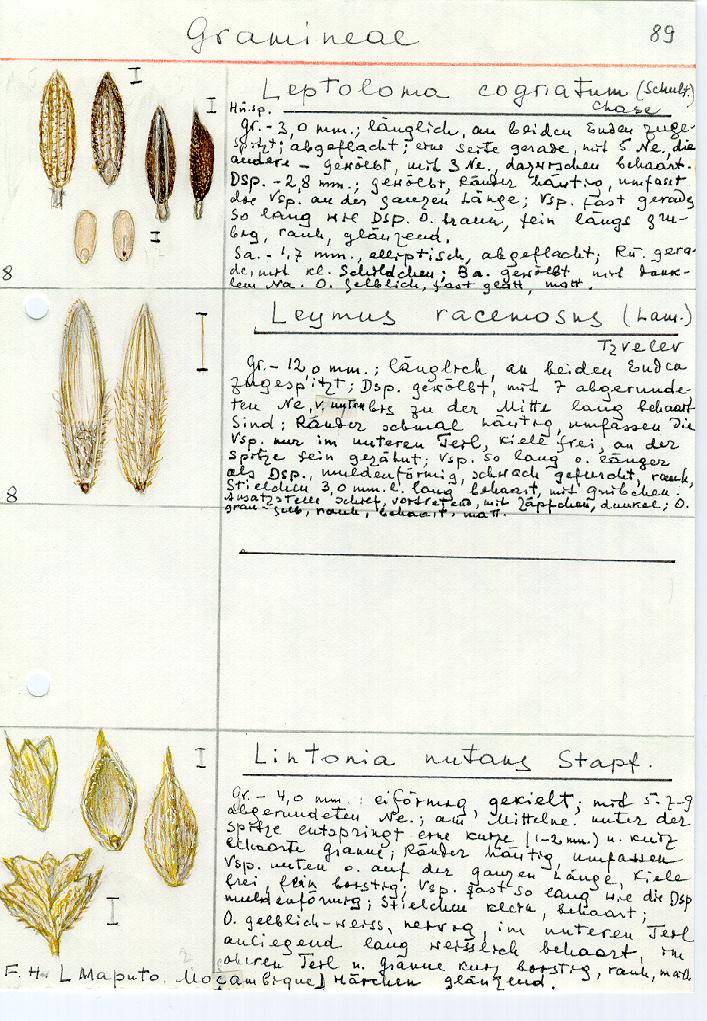 Gramineae 89
Leptoloma cognatum (Schult.)
Chase
Hü.sp.
Gr.- 3,0 mm.; länglich, an beiden Enden zuge-
spitzt; abgeflacht; eine Seite gerade, mit 5 Ne., die
andere – gewölbt, mit 3 Ne., dazwischen behaart.
Dsp. - 2,8 mm.; gewölbt, Ränder häutig, umfasst
die Vsp. an der ganzen Länge; Vsp. fast gerade
so lang wie Dsp. O. braun, fein längs gru-
big, rauh, glänzend.
Sa. - 1,7 mm., elliptisch, abgeflacht; Rü. gera-
de, mit kl. Schildchen; Ba. gewölbt mit dunk-
lem Na. O. gelblich, fast glatt, matt.
8
Leymus racemosus (Lam.)
Tzvelev
Gr.- 12,0 mm.; länglich, an beiden Enden
zugespitzt; Dsp. gewölbt, mit 7 abgerunde-
ten Ne., v. unten bis zu der Mitte lang behaart
sind; Ränder schmal häutig, umfassen die
Vsp. nur im unteren Teil, Kiele frei, an der
Spitze fein gezähnt; Vsp. so lang o. länger
als Dsp., muldenförmig, schwach gefurcht, rauh,
Stielchen 3,0 mm. l. lang behaart, mit Grübchen.
Ansatzstelle schief, vortretend, mit Zäpfchen, dunkel; O.
grau-gelb, rauh, behaart, matt.
8
Lintonia nutans Stapf.
Gr.- 4,0 mm.; eiförmig gekielt; mit 5-7-9
abgerundeten Ne.; am Mittelne. unter der
Spitze entspringt eine kurze (1-2 mm.) u. kurz
behaarte Granne; Ränder häutig, umfassen
Vsp. unten o. auf der ganzen Länge, Kiele
frei, fein borstig; Vsp. fast so lang wie die Dsp
muldenförmig; Stielchen klein, behaart;
O. gelblich-weiss, nervig, im unteren Teil
anliegend lang weisslich behaart, im
oberen Teil u. Granne kurz borstig, rauh, matt
Härchen glänzend.
F. H. L Maputo, Moçambique